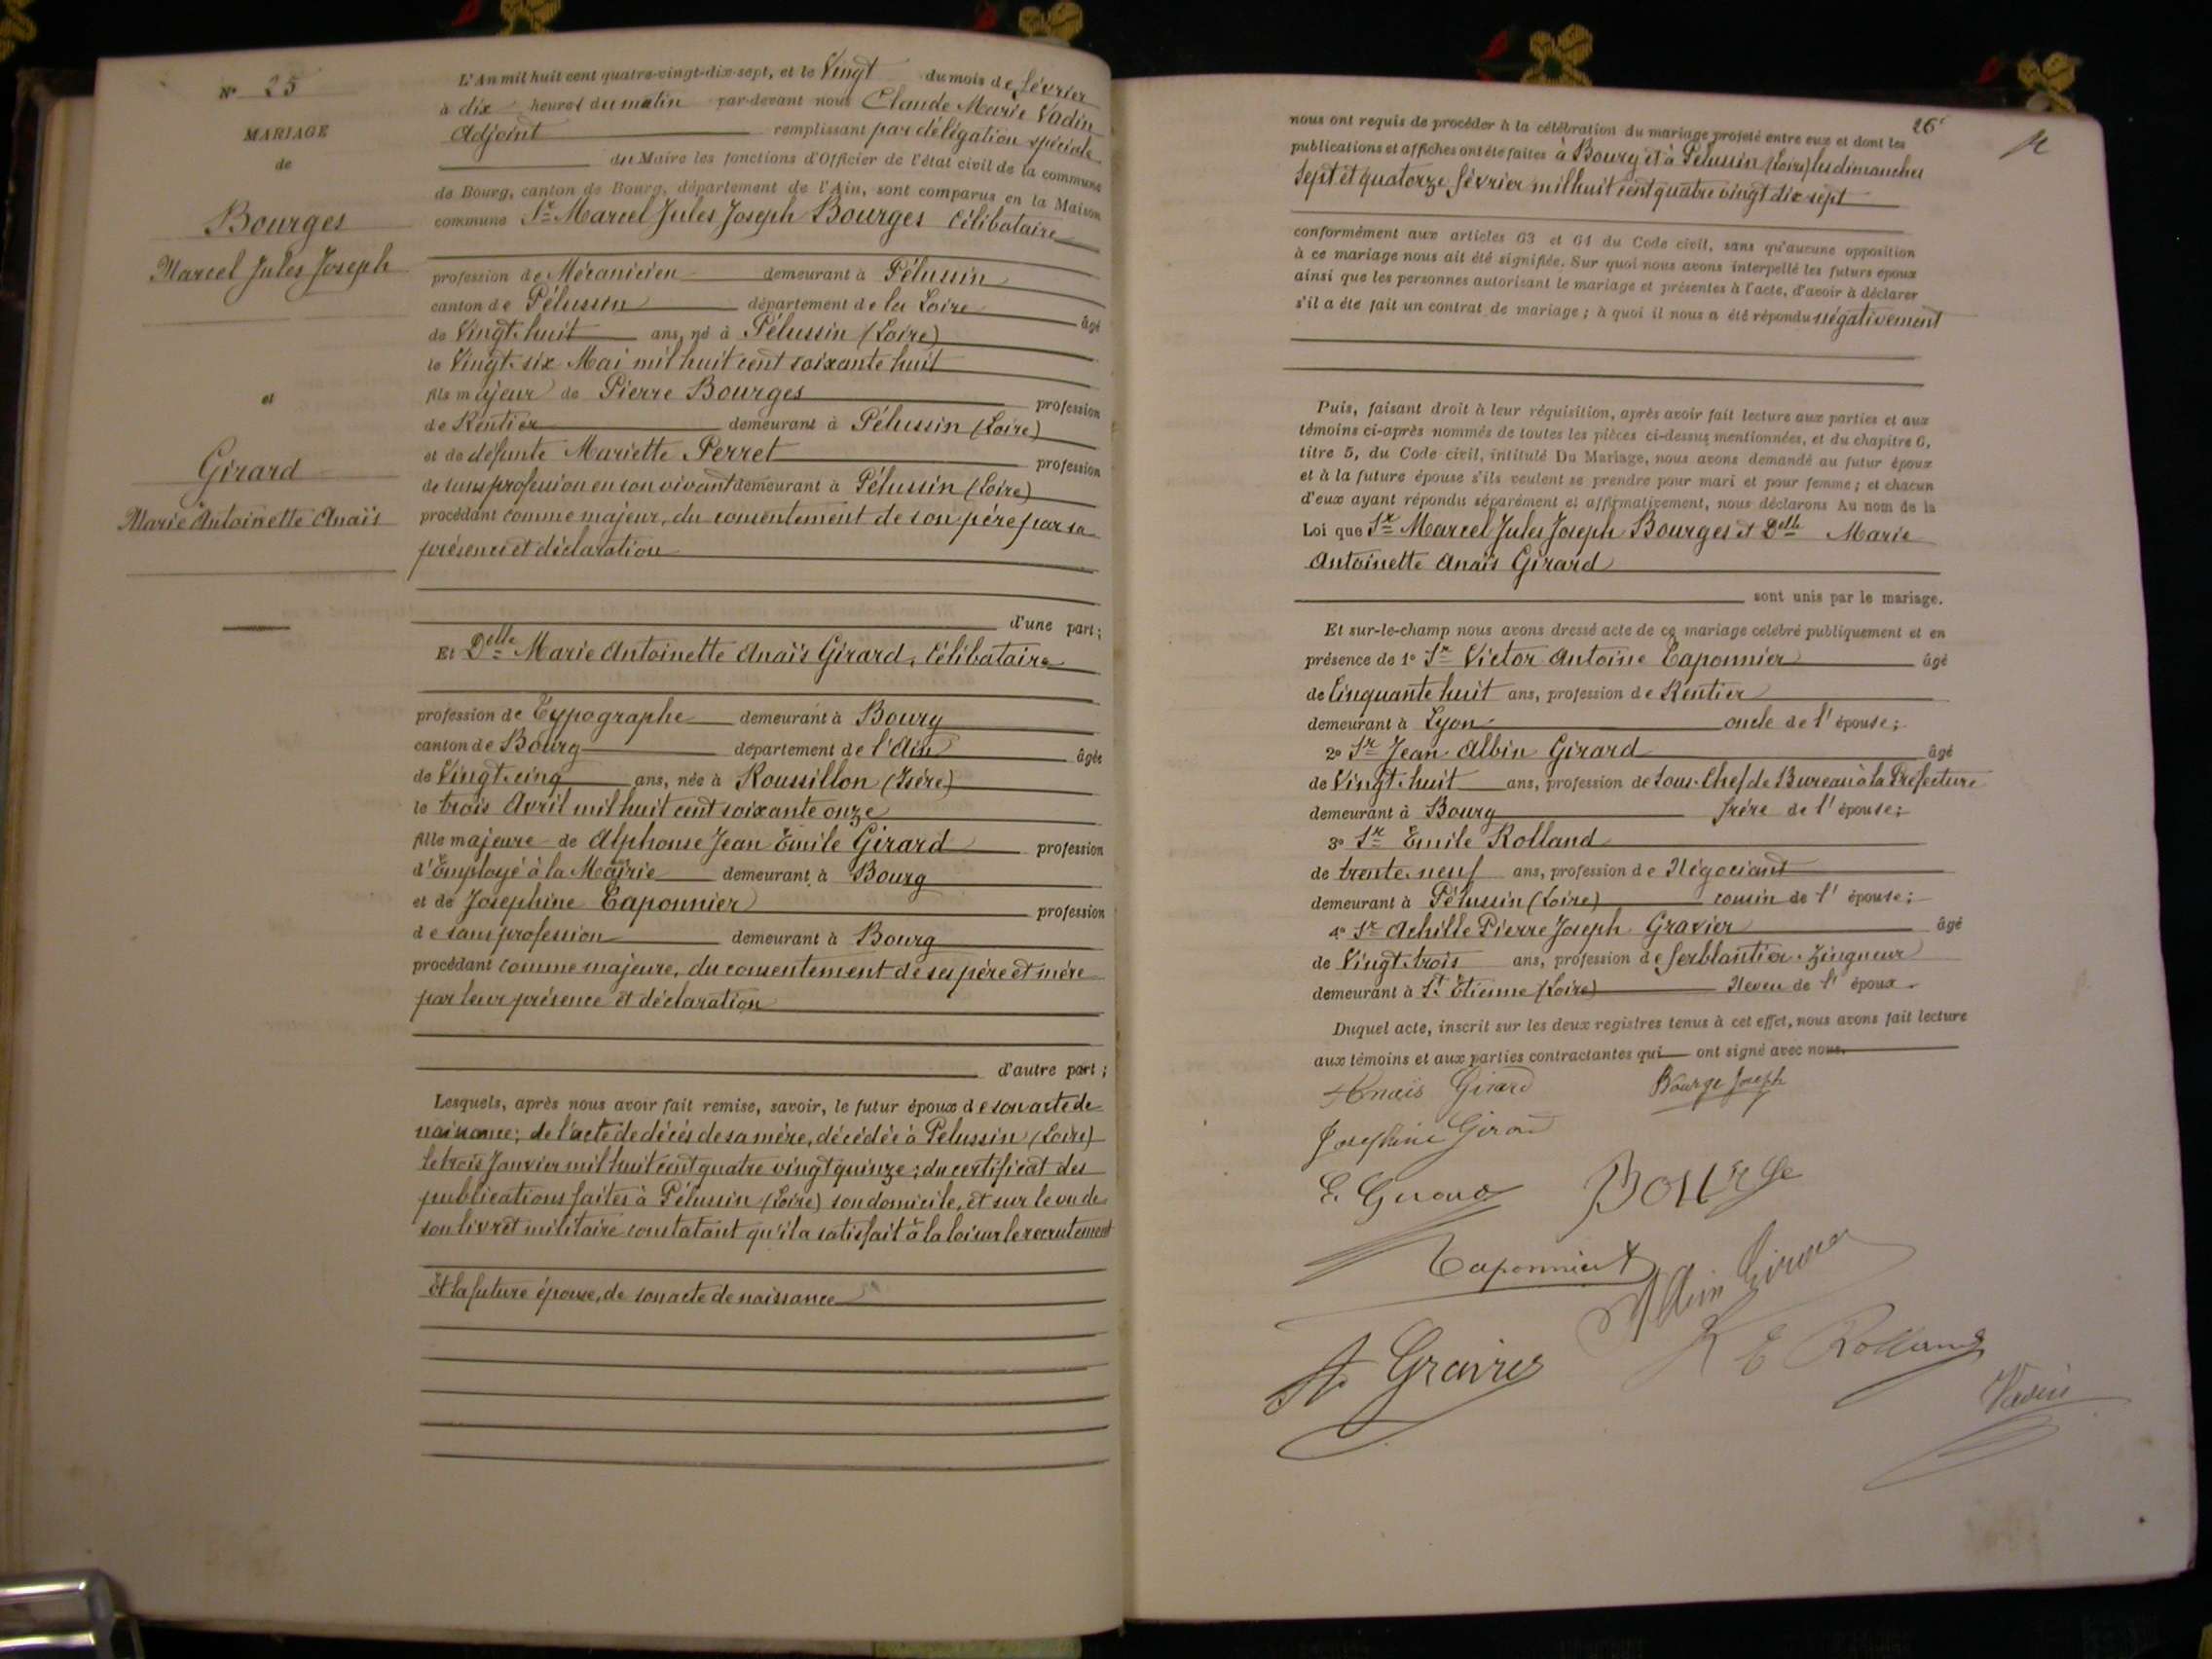 N° 25
MARIAGE
de
Bourges
Marcel Jules Joseph
et
Girard
Marie Antoinette Anaïs
L'An mil huit cent quatre-vingt-dix-sept, et le Vingt du mois de février
à dix heures du matin par-devant nous Claude Marie Vadin
Adjoint remplissant par délégation spéciale
du Maire les fonctions d'Officier de l'état civil de la commune
de Bourg, canton de Bourg, département de l'Ain, sont comparus en la Maison
commune Sr Marcel Jules Joseph Bourges Célibataire
profession de Mécanicien demeurant à Pélussin
canton de Pélussin département de la Loire âgé
de Vingt-huit ans, né à Pélussin (Loire)
le Vingt-six Mai mil huit cent soixante huit
fils majeur de Pierre Bourges profession
de Rentier demeurant à Pélussin (Loire)
et de défunte Mariette Perret profession
de sans profession en son vivant demeurant à Pélussin (Loire)
procédant comme majeur, du consentement de son père par sa
présence et déclaration
d'une part;
Et Delle Marie Antoinette Anaïs Girard, Célibataire
profession de Typographe demeurant à Bourg
canton de Bourg département de l'Ain âgée
de Vingt-cinq ans, née à Roussillon (Isère)
le trois Avril mil huit cent soixante onze
fille majeure de Alphonse Jean Emile Girard profession
d'Employé à la Mairie demeurant à Bourg
et de Josephine Taponnier profession
de sans profession demeurant à Bourg
procédant comme majeure, du consentement de ses père et mère
par leur présence et déclaration
d'autre part;
Lesquels, après nous avoir fait remise, savoir, le futur époux de son acte de
naissance; de l'acte de décès de sa mère, décédée à Pelussin (Loire)
le trois Janvier mil huit cent quatre vingt quinze; du certificat des
publications faites à Pélussin (Loire) son domicile, et sur le vu de
son livret militaire constatant qu'il a satisfait à la loi sur le recrutement
Et la future épouse, de son acte de naissance
26
nous ont requis de procéder à la célébration du mariage projeté entre eux et dont les
publications et affiches ont été faites à Bourg et à Pélussin (Loire) les dimanches
Sept et quatorze février mil huit cent quatre vingt dix sept
conformément aux articles 63 et 64 du Code civil, sans qu'aucune opposition
à ce mariage nous ait été signifiée. Sur quoi nous avons interpellé les futurs époux
ainsi que les personnes autorisant le mariage et présentes à l'acte, d'avoir à déclarer
s'il a été fait un contrat de mariage; à quoi il nous a été répondu négativement
Puis, faisant droit à leur réquisition, après avoir fait lecture aux parties et aux
témoins ci-après nommés de toutes les pièces ci-dessus mentionnées, et du chapitre 6,
titre 5, du Code civil, intitulé Du Mariage, nous avons demandé au futur époux
et à la future épouse s'ils veulent se prendre pour mari et pour femme; et chacun
d'eux ayant répondu séparément et affirmativement, nous déclarons Au nom de la
Loi que Sr Marcel Jules Joseph Bourges et Delle Marie
Antoinette Anaïs Girard
sont unis par le mariage.
Et sur-le-champ nous avons dressé acte de ce mariage célébré publiquement et en
présence de 1° Sr Victor Antoine Taponnier âgé
de Cinquante huit ans, profession de Rentier
demeurant à Lyon oncle de l'épouse;
2° Sr Jean Albin Girard âgé
de Vingt-huit ans, profession de Sous-Chef de Bureau à la Préfecture
demeurant à Bourg frère de l'épouse;
3° Sr Emile Rolland
de trente-neuf ans, profession de Négociant
demeurant à Pélussin (Loire) cousin de l'épouse;
4° Sr Achille Pierre Joseph Gravier âgé
de Vingt-trois ans, profession de ferblantier-Zingueur
demeurant à St Etienne (Loire) Neveu de l'époux.
Duquel acte, inscrit sur les deux registres tenus à cet effet, nous avons fait lecture
aux témoins et aux parties contractantes qui ont signé avec nous.
Anaïs Girard Bourge Joseph
Josephine Girard
E. Girard Bourge
Taponnier
Albin Girard
A Gravier
E Rolland
Vadin